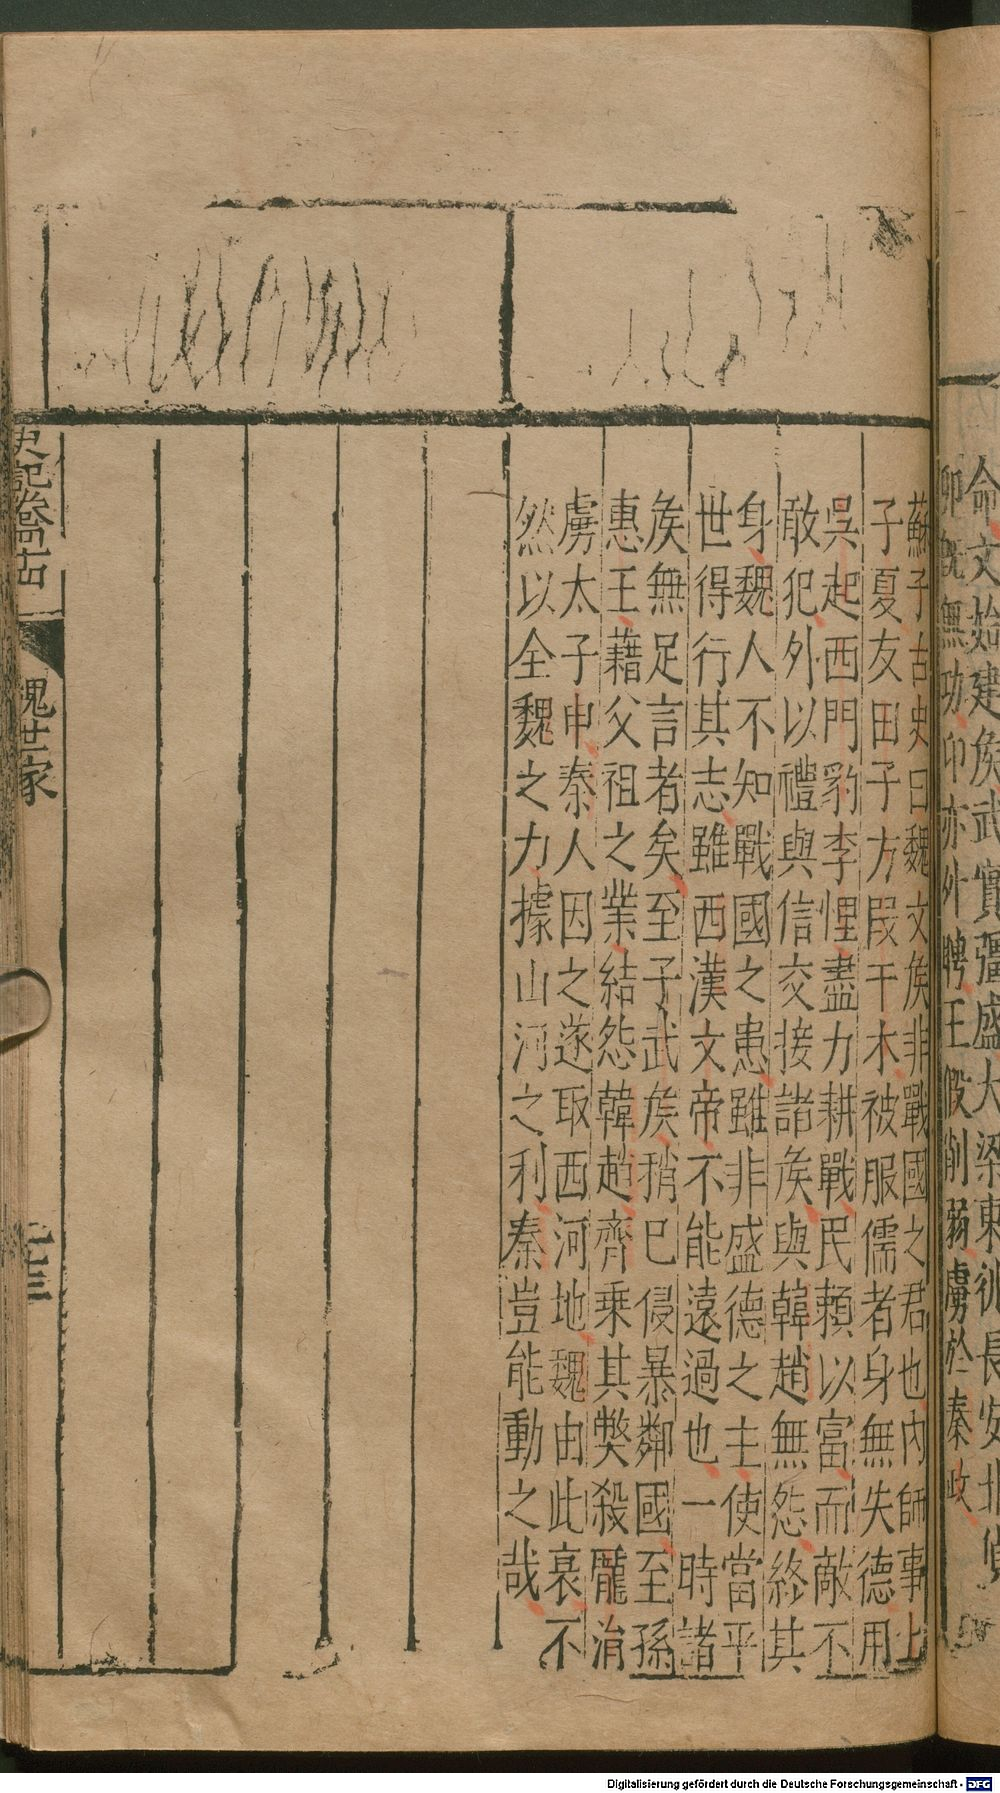 命文始建矦武實彊盛大梁東徙長安北
卬既無功卬亦外聘王假削弱虜於秦政
蘇子古史曰魏文矦非戰國之君也內師事上
子夏友田子方叚干木被服儒者身無失德用
吳起西門豹李悝盡力耕戰民賴以富而敵不
敢犯外以禮與信交接諸矦與韓趙無怨終其
身魏人不知戰國之患雖非盛德之主使當平
世得行其志雖西漢文帝不能遠過也一時諸
矦無足言者矣至子武矦稍巳侵暴鄰國至孫
惠王藉父祖之業結怨韓趙齊乗其獘殺龐涓
虜太子申秦人因之遂取西河地魏由此衰不
然以全魏之力據山河之利秦豈能動之哉
史記卷四十四
魏世家
二十三
Digitalisierung gefördert durch die Deutsche Forschungsgemeinschaft - DFG